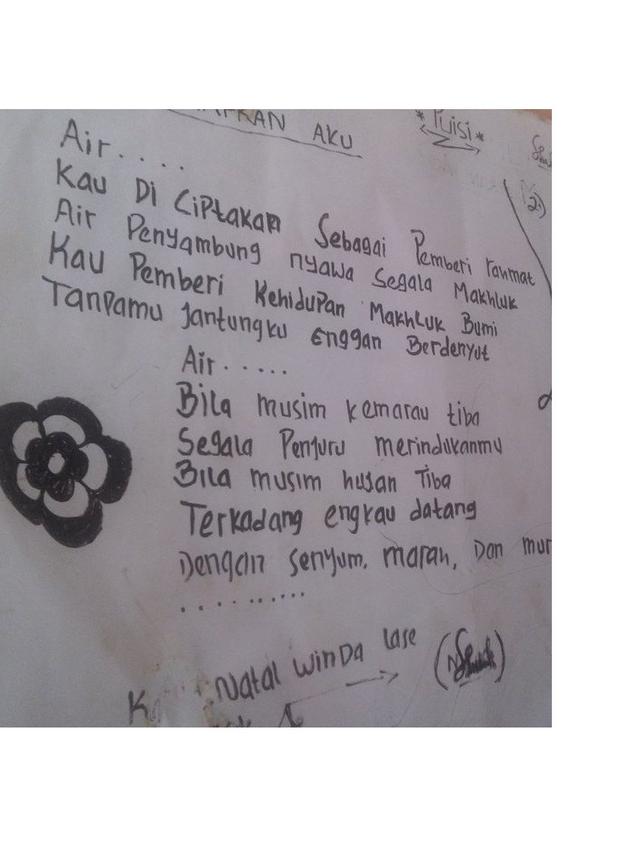 AFKAN AKU
*Puisi*
Air....
2.)
Kau Di Ciptakan Sebagai Pemberi rahmat
Air Penyambung nyawa Segala Makhluk
Kau Pemberi Kehidupan Makhluk Bumi
Tanpamu Jantungku Enggan Berdenyut
Air.....
Bila musim kemarau tiba
Segala Penjuru merindukanmu
Bila musim hujan Tiba
Terkadang engkau datang
Dengan senyum, marah, Dan mur
..........
Natal Winda Lase